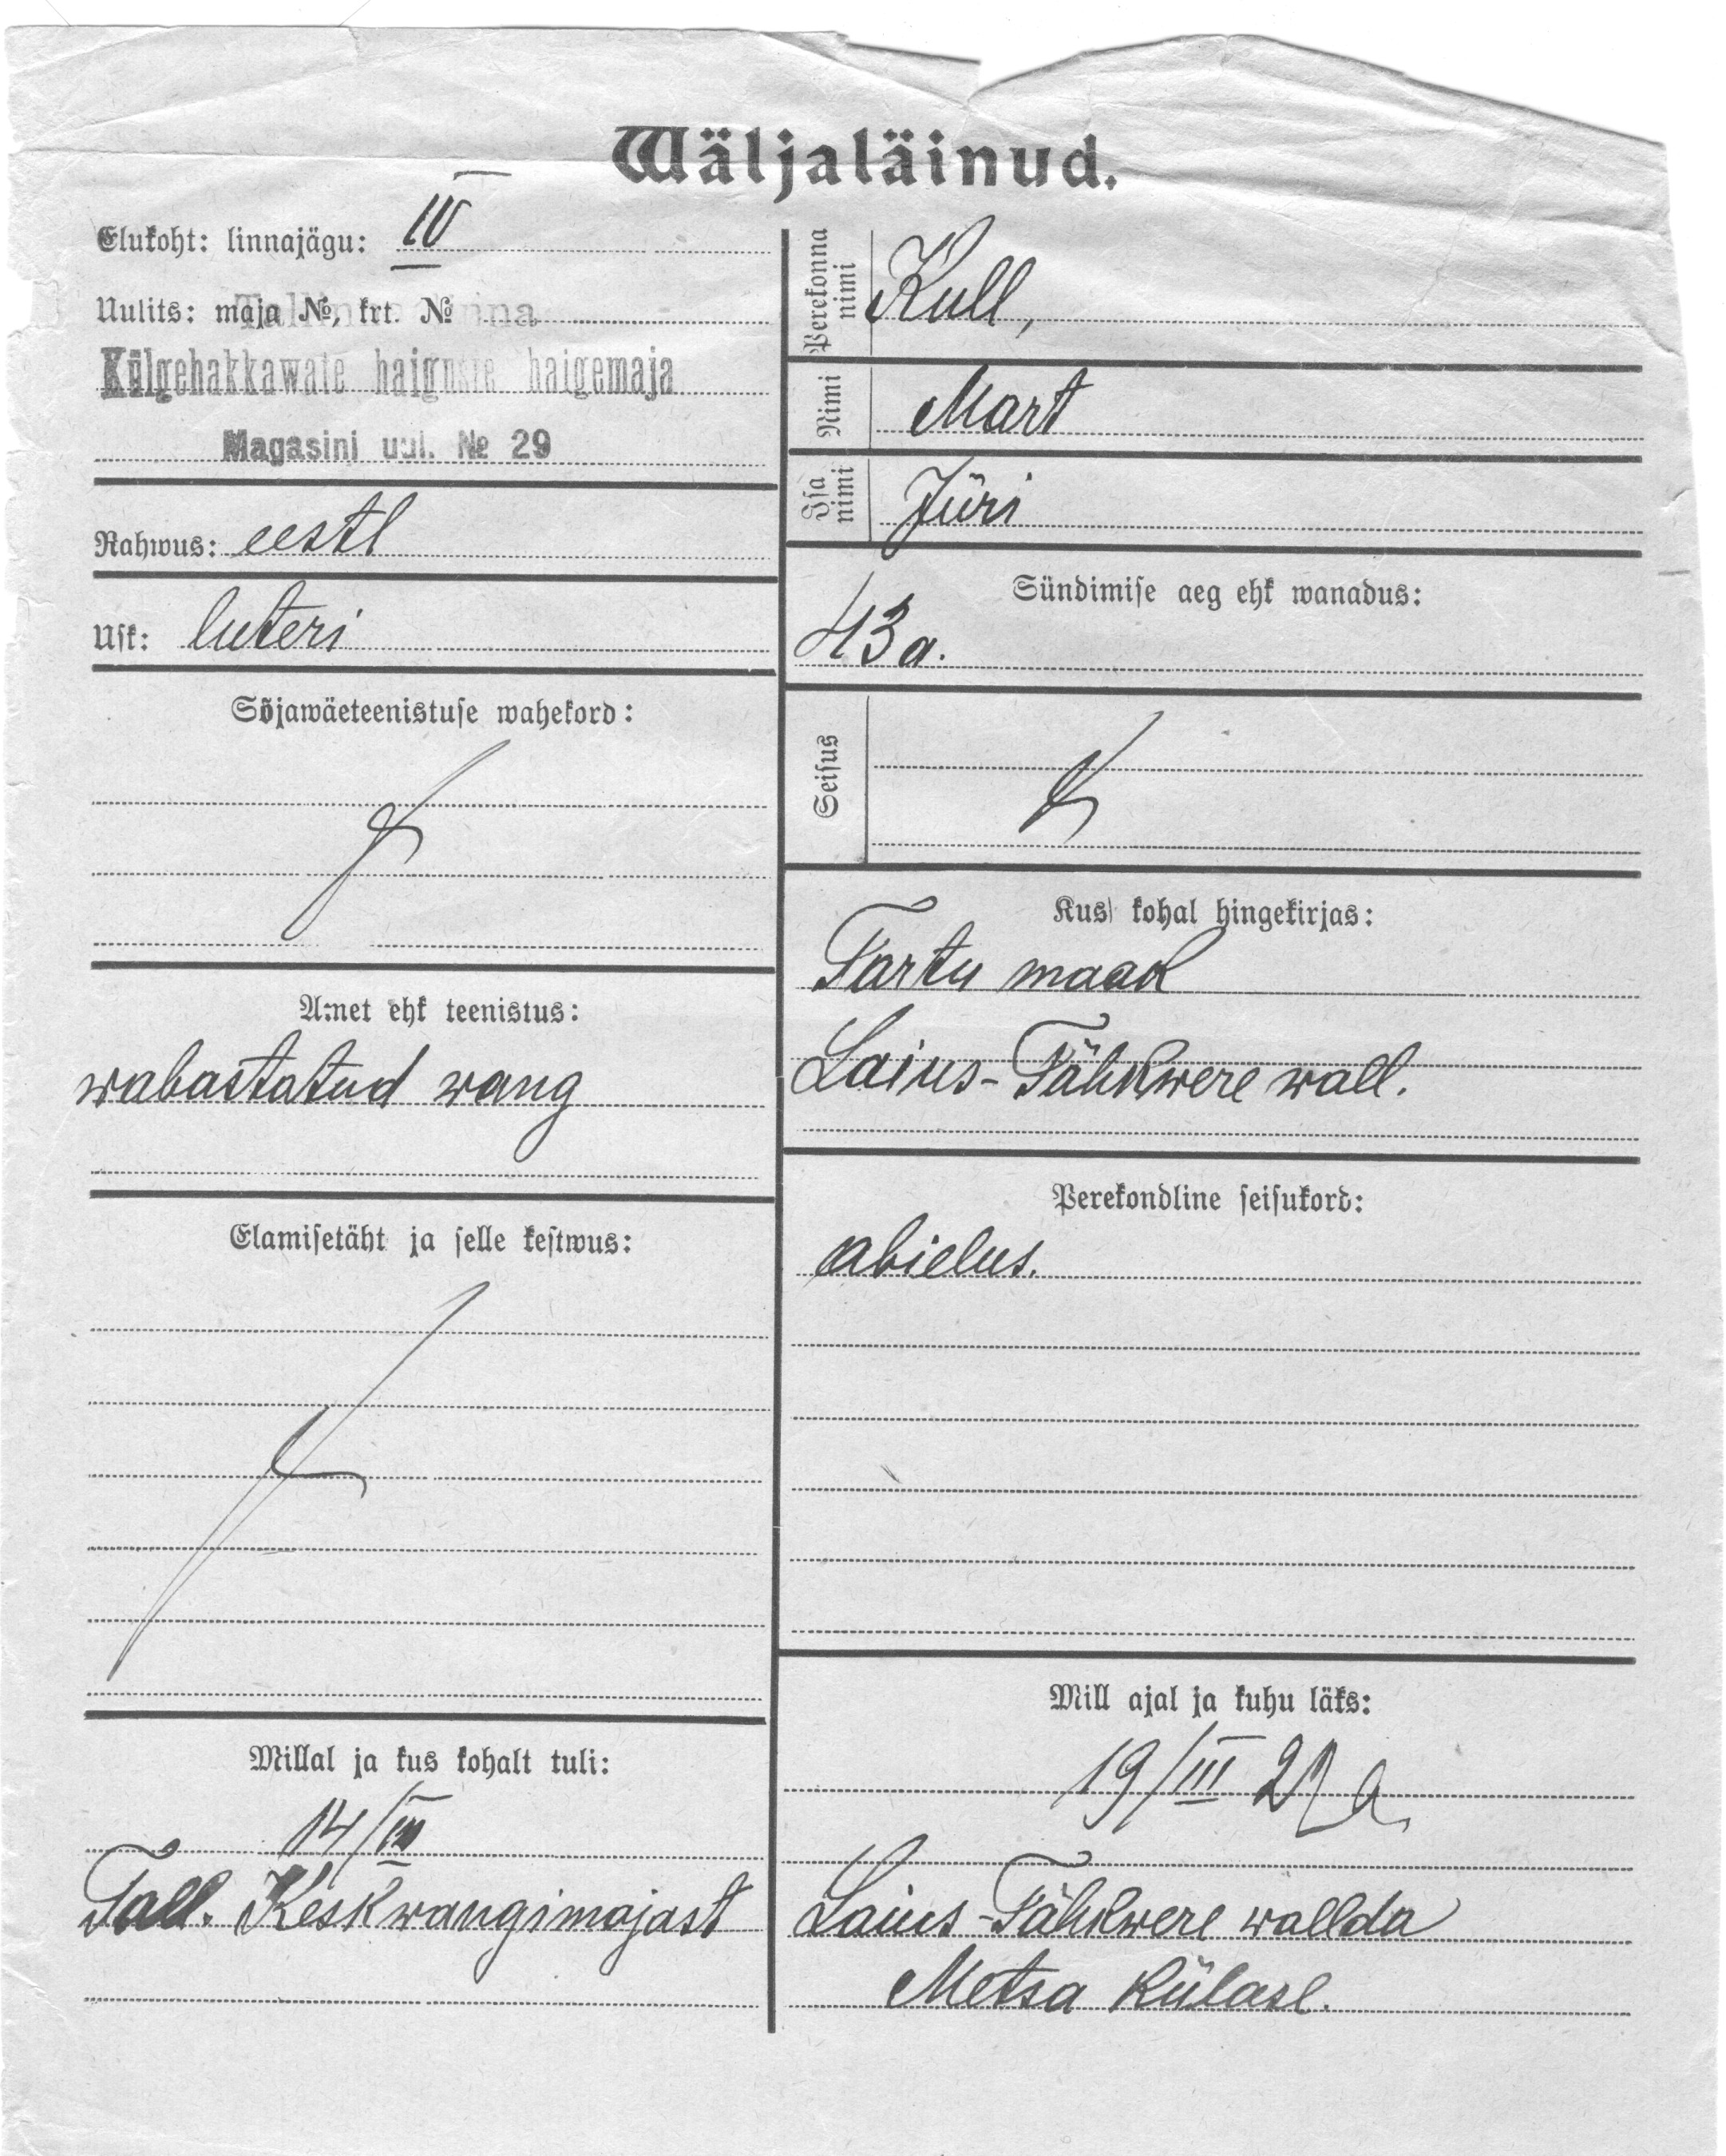 Wäljaläinud.
Elukoht: linnajägu: IV
Uulits: maja №, krt. №
Tallinna linna
Külgehakkawate haiguste haigemaja
Magasini uul. № 29
Rahwus: eestl
Usk: luteri
Sõjawäeteenistuse wahekord:
Amet ehk teenistus:
wabastatud wang
Elamisetäht ja selle kestwus:
Millal ja kus kohalt tuli:
14/III
Tall. Keskwangimajast
Perekonna nimi Kull,
Nimi Mart
Isa nimi Jüri
Sündimise aeg ehk wanadus:
43 a.
Seisus
Kus kohal hingekirjas:
Tartu maak
Laius-Tähkwere wall.
Perekondline seisukord:
abielus.
Mill ajal ja kuhu läks:
19/III a.
Laius-Tähkwere wallda
Metsa külase.